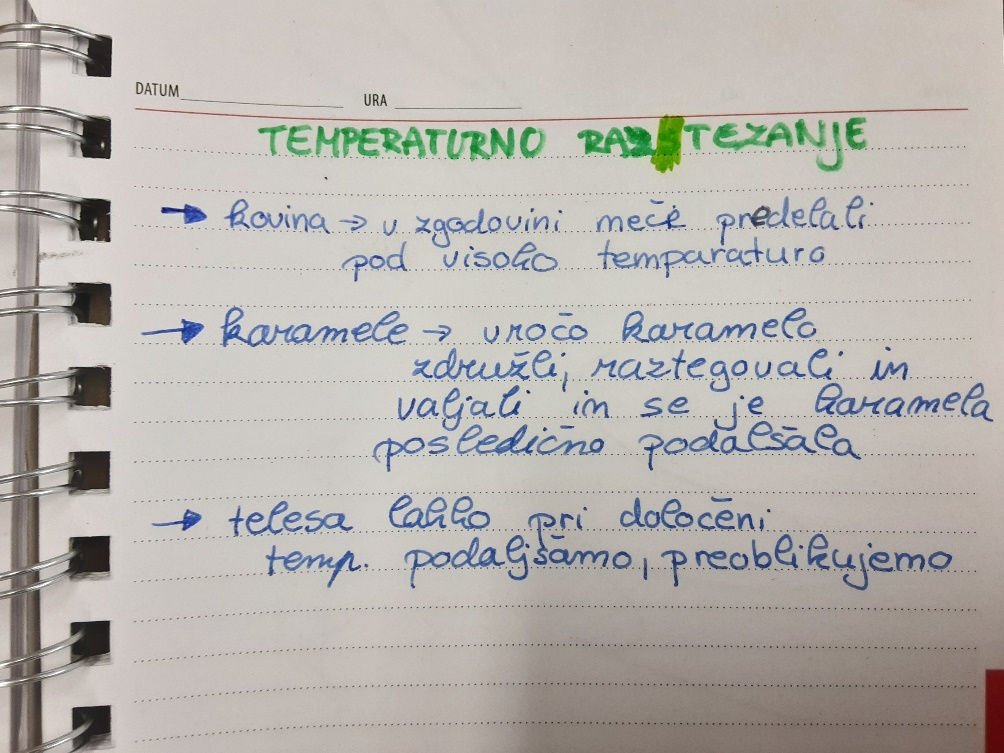 DATUM URA
TEMPERATURNO RAZTEZANJE
→ kovina → v zgodovini meče predelali
pod visoko temparaturo
→ karamele → vročo karamelo
združli, raztegovali in
valjali in se je karamela
posledično podalšala
→ telesa lahko pri določeni
temp. podaljšamo, preoblikujemo